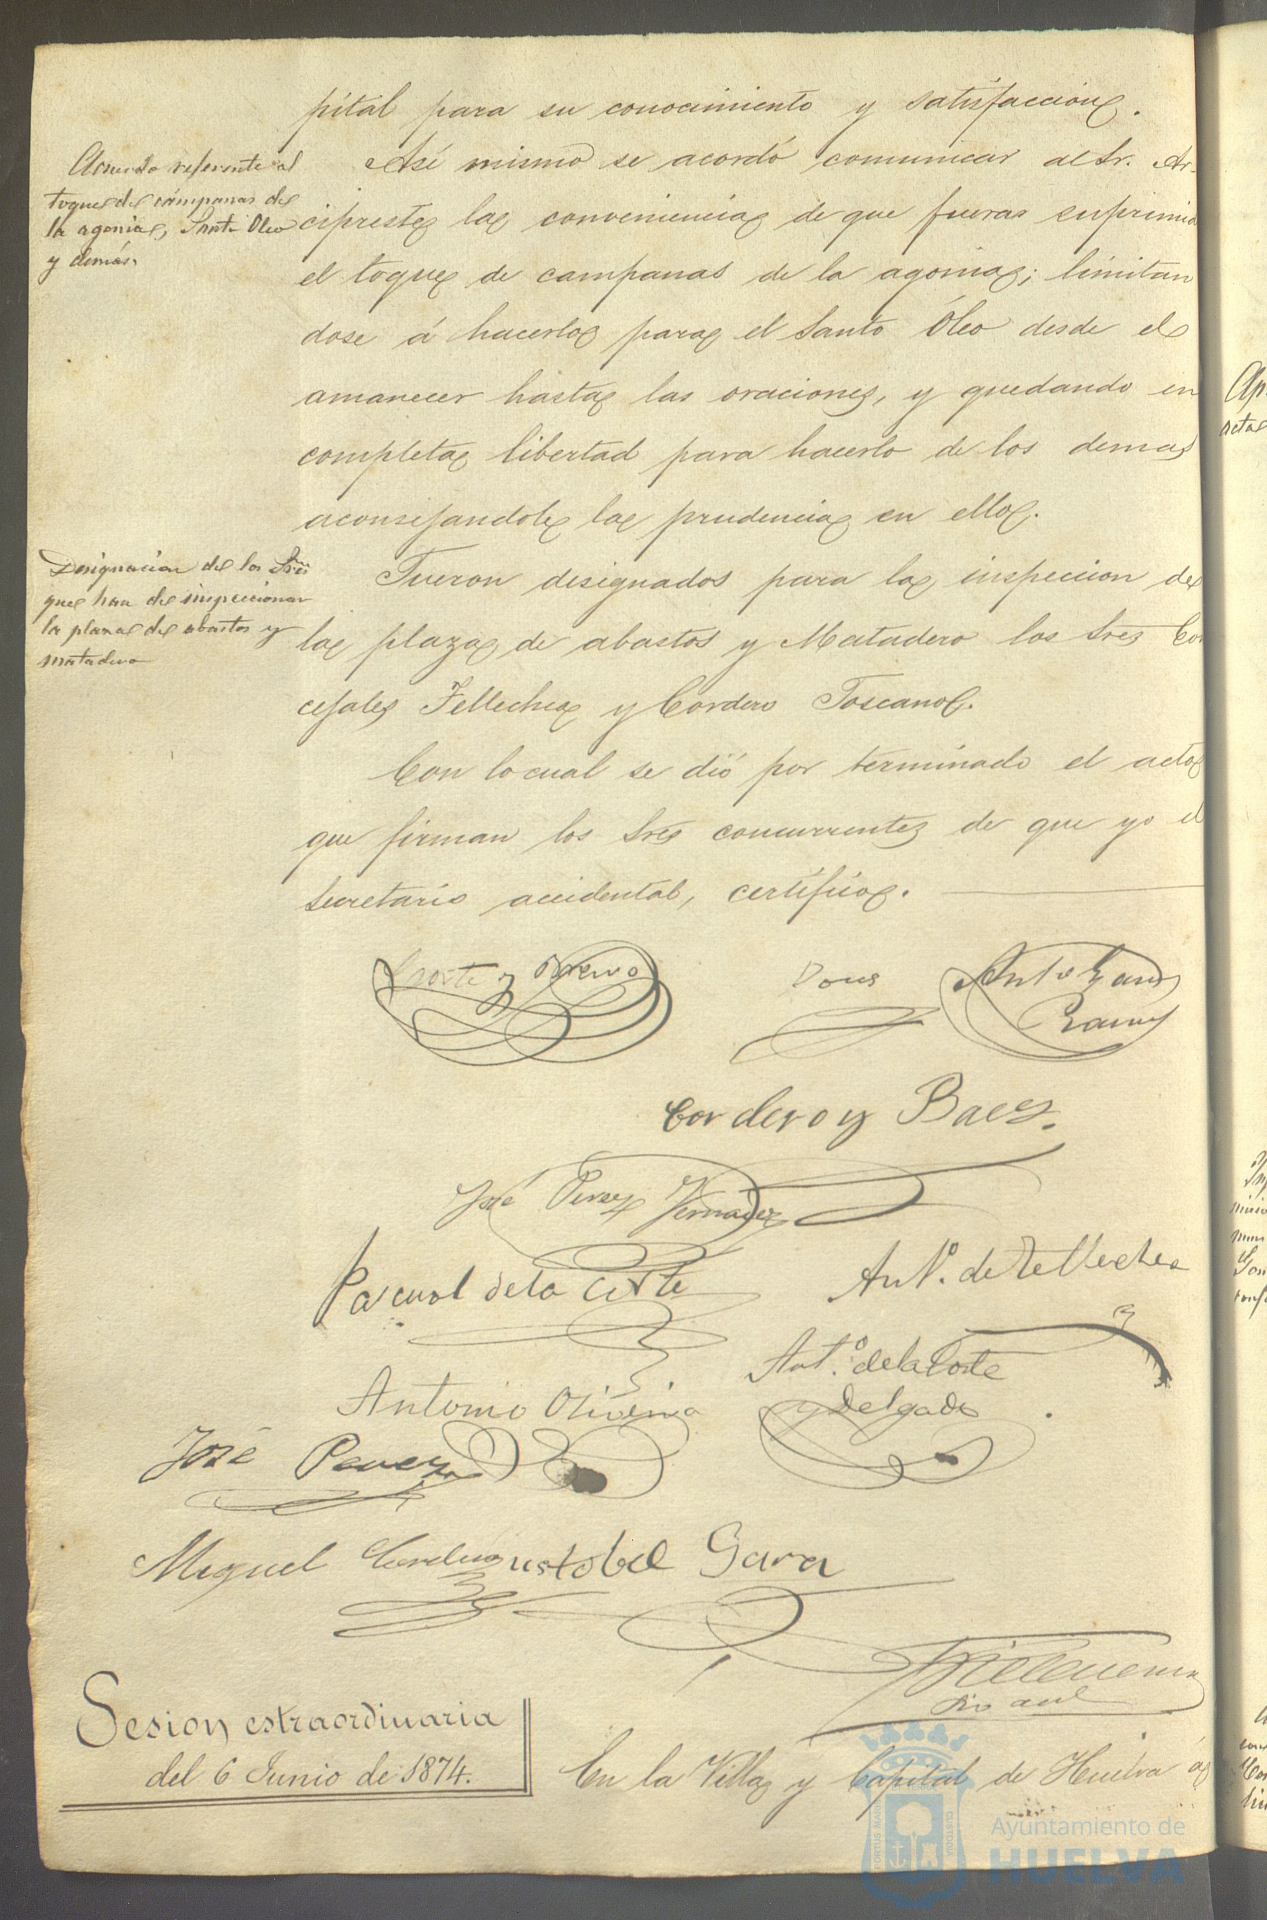 pital para su conocimiento y satisfaccion.
Acuerdo referente al
toque de campanas de
la agonia, Santo Oleo
y demás.
Asi mismo se acordó comunicar al Sr. Ar-
cipreste la conveniencia de que fuera suprimido
el toque de campanas de la agonia; limitan
dose á hacerlo para el Santo Óleo desde el
amanecer hasta las oraciones, y quedando en
completa libertad para hacerlo de los demas
aconsejandole la prudencia en ello.
Designacion de los Sres
que han de inspeccionar
la plaza de abastos y
matadero
Fueron designados para la inspeccion de
la plaza de abastos y Matadero los Sres Con
cejales Tellechea y Cordero Toscano.
Con lo cual se dió por terminado el acto
que firman los Sres concurrentes de que yo el
Secretario accidental, certifico.
Dous
Cordero y Baez.
José Perez Fernandez
Pascual de la Corte
Anto. de Tellechea
Anto. de la Corte
y Delgado
Antonio Oliveira
José Perez
Miguel Cordero
Gara
Sesion estraordinaria
del 6 Junio de 1874.
En la Villa y Capital de Huelva á
PORTUS MARIS
CUSTODIA
Ayuntamiento de
HUELVA